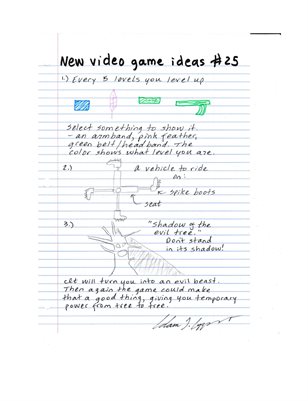 New video game ideas #25
1.) Every 5 levels you level up
Select something to show it.
- an armband, pink feather,
green belt/headband. The
color shows what level you are.
2.) A vehicle to ride
on:
spike boots
seat
3.) "Shadow of the
evil tree."
Don't stand
in its shadow!
It will turn you into an evil beast.
Then again the game could make
that a good thing, giving you temporary
power from tree to tree.